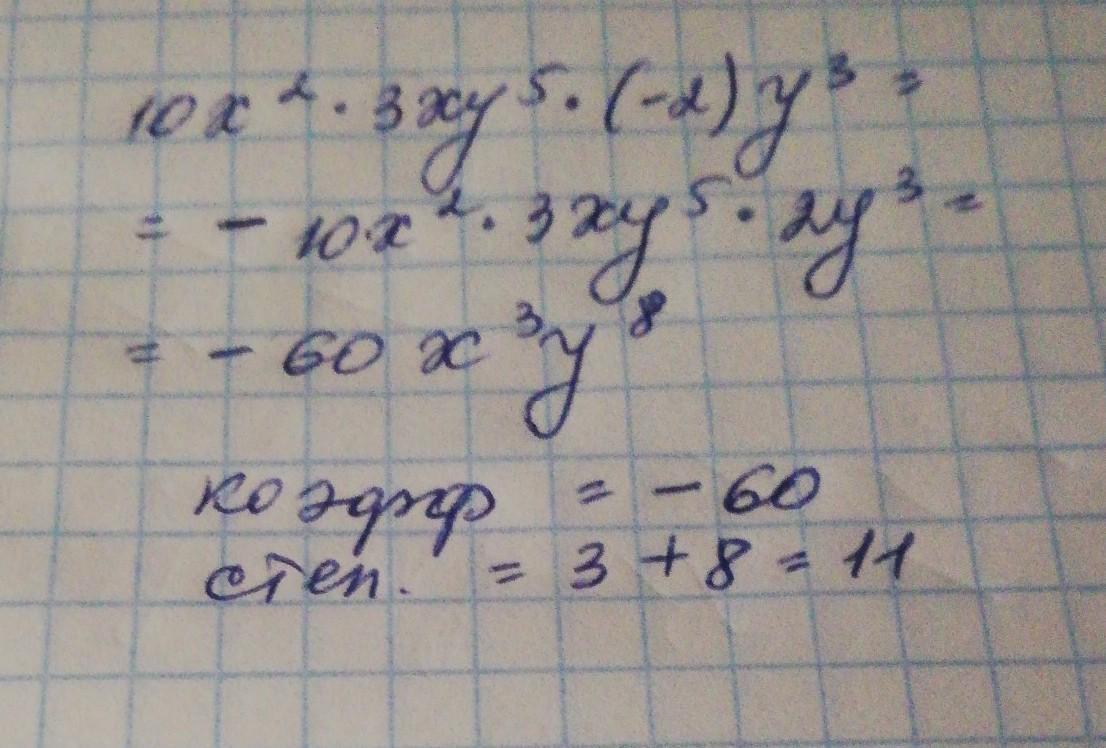 10x² · 3xy⁵ · (-2)y³ =
= - 10x² · 3xy⁵ · 2y³ =
= - 60x³y⁸
коэфф = - 60
степ. = 3 + 8 = 11